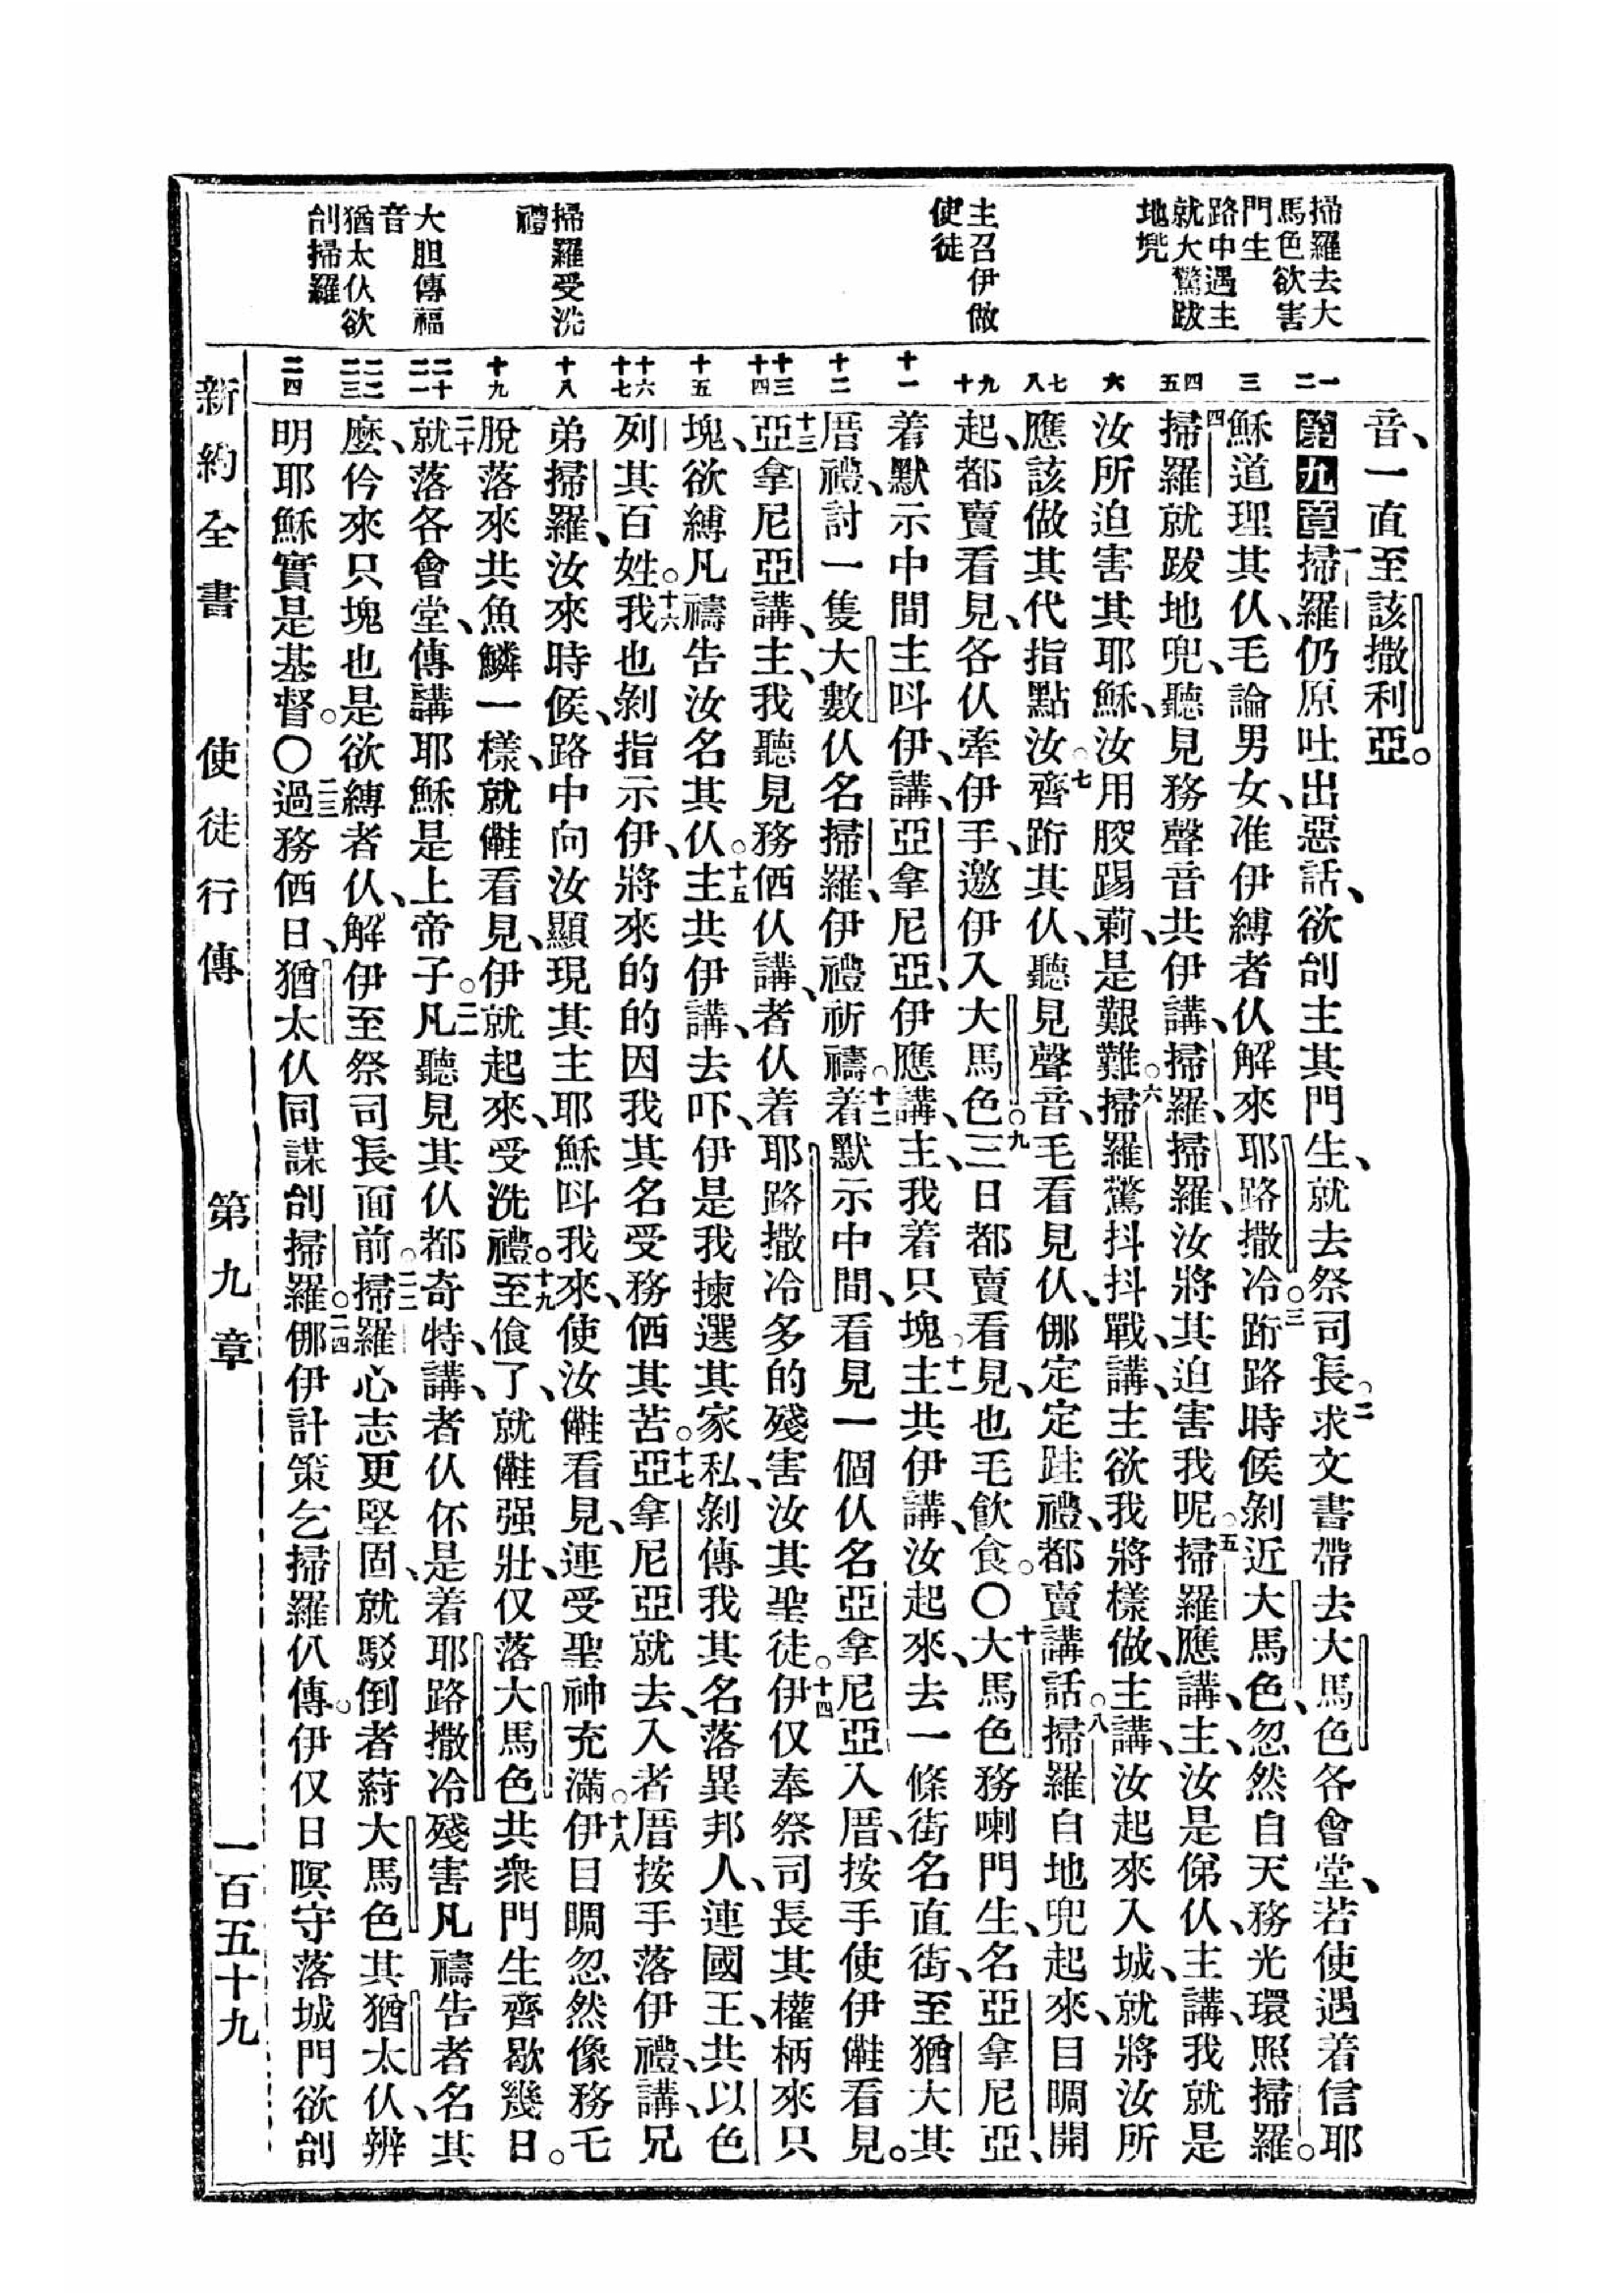 掃羅去大
馬色欲害
門生
路中遇主
就大驚跋
地兠
主召伊做
使徒
掃羅受洗
禮
大胆傳福
音
猶太仈欲
刣掃羅
一
二
三
四
五
六
七
八
九
十
十一
十二
十三
十四
十五
十六
十七
十八
十九
二十
二一
二二
二三
二四
音、一直至該撒利亞。
第九章一掃羅、仍原吐出惡話、欲刣主其門生、就去祭司長。二求文書帶去大馬色各會堂、若使遇着信耶
穌道理其仈、毛論男女、准伊縛者仈解來耶路撒冷。三跨路時候剝近大馬色、忽然自天務光環照掃羅。
四掃羅就跋地兜、聽見務聲音共伊講、掃羅、掃羅、汝將其迫害我呢。五掃羅應講、主、汝是俤仈、主講、我就是
汝所迫害其耶穌、汝用骹踢莿、是艱難。六掃羅驚抖抖戰、講、主欲我將樣做、主講、汝起來入城、就將汝所
應該做其代指點汝。七齊跨其仈、聽見聲音、毛看見仈、㑚定定跬禮、都賣講話。八掃羅自地兜起來、目睭開
起、都賣看見、各仈牽伊手、邀伊入大馬色。九三日都賣看見、也毛飲食。〇十大馬色務喇門生、名亞拿尼亞、
着默示中間主呌伊、講、亞拿尼亞、伊應講、主、我着只塊。十一主共伊講、汝起來、去一條街名直街、至猶大其
厝禮、討一隻大數仈名掃羅、伊禮祈禱。十二着默示中間、看見一個仈名亞拿尼亞入厝、按手使伊㒕看見。
十三亞拿尼亞講、主、我聽見務伵仈講、者仈着耶路撒冷多的殘害汝其聖徒。十四伊仅奉祭司長其權柄來只
塊、欲縛凡禱告汝名其仈。十五主共伊講、去吓、伊是我揀選其家私、剝傳我其名落異邦人、連國王、共以色
列其百姓。十六我也剝指示伊、將來的的因我其名受務伵其苦。十七亞拿尼亞就去、入者厝按手落伊禮、講、兄
弟掃羅、汝來時候、路中向汝顯現其主耶穌呌我來、使汝㒕看見、連受聖神充滿。十八伊目睭忽然像務乇
脫落來共魚鱗一樣、就㒕看見、伊就起來、受洗禮。十九至飧了、就㒕强壯、仅落大馬色共衆門生齊歇幾日。
二十就落各會堂、傳講耶穌是上帝子。二一凡聽見其仈都奇特、講、者仈伓是着耶路撒冷殘害凡禱告者名其
麼、仱來只塊也是欲縛者仈、解伊至祭司長面前。二二掃羅心志更堅固、就駁倒者蒔大馬色其猶太仈、辨
明耶穌實是基督。〇二三過務伵日、猶太仈同謀刣掃羅。二四㑚伊計策乞掃羅仈傳。伊仅日暝守落城門欲刣
新約全書　使徒行傳　第九章　一百五十九